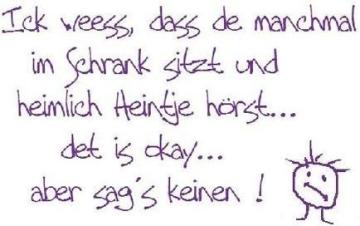 Ick weess, dass de manchmal
im Schrank sitzt und
heimlich Heintje hörst...
det is okay...
aber sag's keinen !